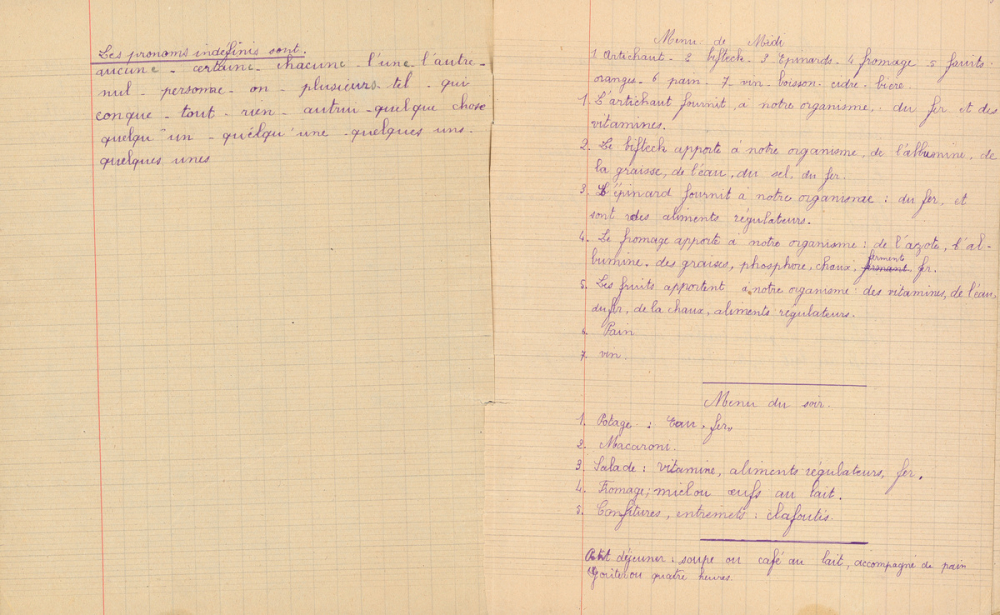 Les pronoms indéfinis sont.
aucune - certaine - chacune - l'une l'autre -
nul - personne - on - plusieurs - tel - qui
conque - tout - rien - autrui - quelque chose
quelqu'un - quelqu'une - quelques uns -
quelques unes
Menu de Midi
1 Artichaut - 2 bifteck - 3 Epinards - 4 fromage - 5 fruits -
oranges - 6 pain - 7 vin - boisson - cidre - bière.
1. L'artichaut fournit, à notre organisme, du fer et des
vitamines.
2. Le bifteck apporte à notre organisme, de l'albumine, de
la graisse, de l'eau, du sel, du fer.
3. L'épinard fournit à notre organisme : du fer, et
sont des aliments régulateurs.
4. Le fromage apporte à notre organisme : de l'azote, l'al-
bumine, des graises, phosphore, chaux, ferments fer.
5. Les fruits apportent à notre organisme : des vitamines, de l'eau,
du fer, de la chaux, aliments régulateurs.
6. Pain
7. vin.
Menu du soir
1. Potage : Eau, fer,
2. Macaroni.
3. Salade : vitamine, aliments regulateurs, fer.
4. Fromage; miel ou œufs au lait.
5. Confitures, entremets : clafoutis.
Petit déjeuner : soupe ou café au lait, accompagné de pain
Goûter ou quatre heures.